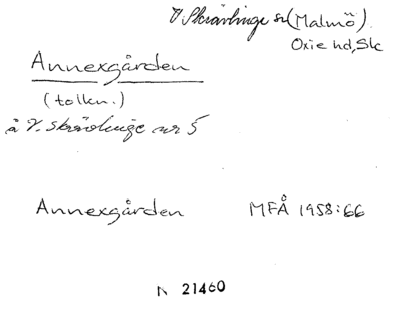 V Skrävlinge sn (Malmö)
Oxie hd, Sk
Annexgården
(tolkn.)
å V. Skrävlinge nr 5
Annexgården MFÅ 1958:66
N 21460